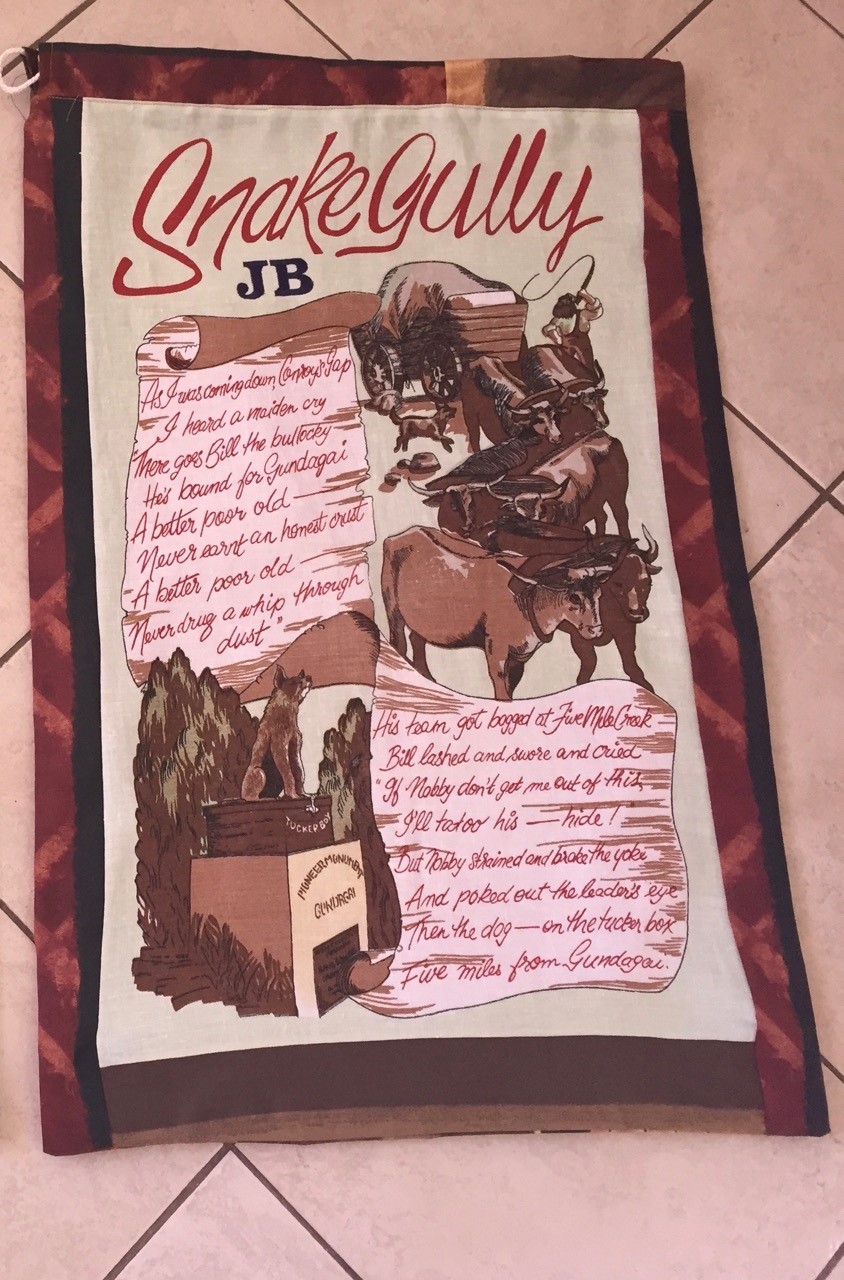 Snake Gully
JB
As I was coming down Conroy's Gap
I heard a maiden cry
"There goes Bill the bullocky
He's bound for Gundagai
A better poor old —
Never earnt an honest crust
A better poor old —
Never drug a whip through
dust"
His team got bogged at Five Mile Creek
Bill lashed and swore and cried
"If Nobby don't get me out of this,
I'll tatoo his — hide!
But Nobby strained and broke the yoke
And poked out the leader's eye
Then the dog — on the tucker box
Five miles from Gundagai.
TUCKERBOX
PIONEER MONUMENT
GUNDAGAI